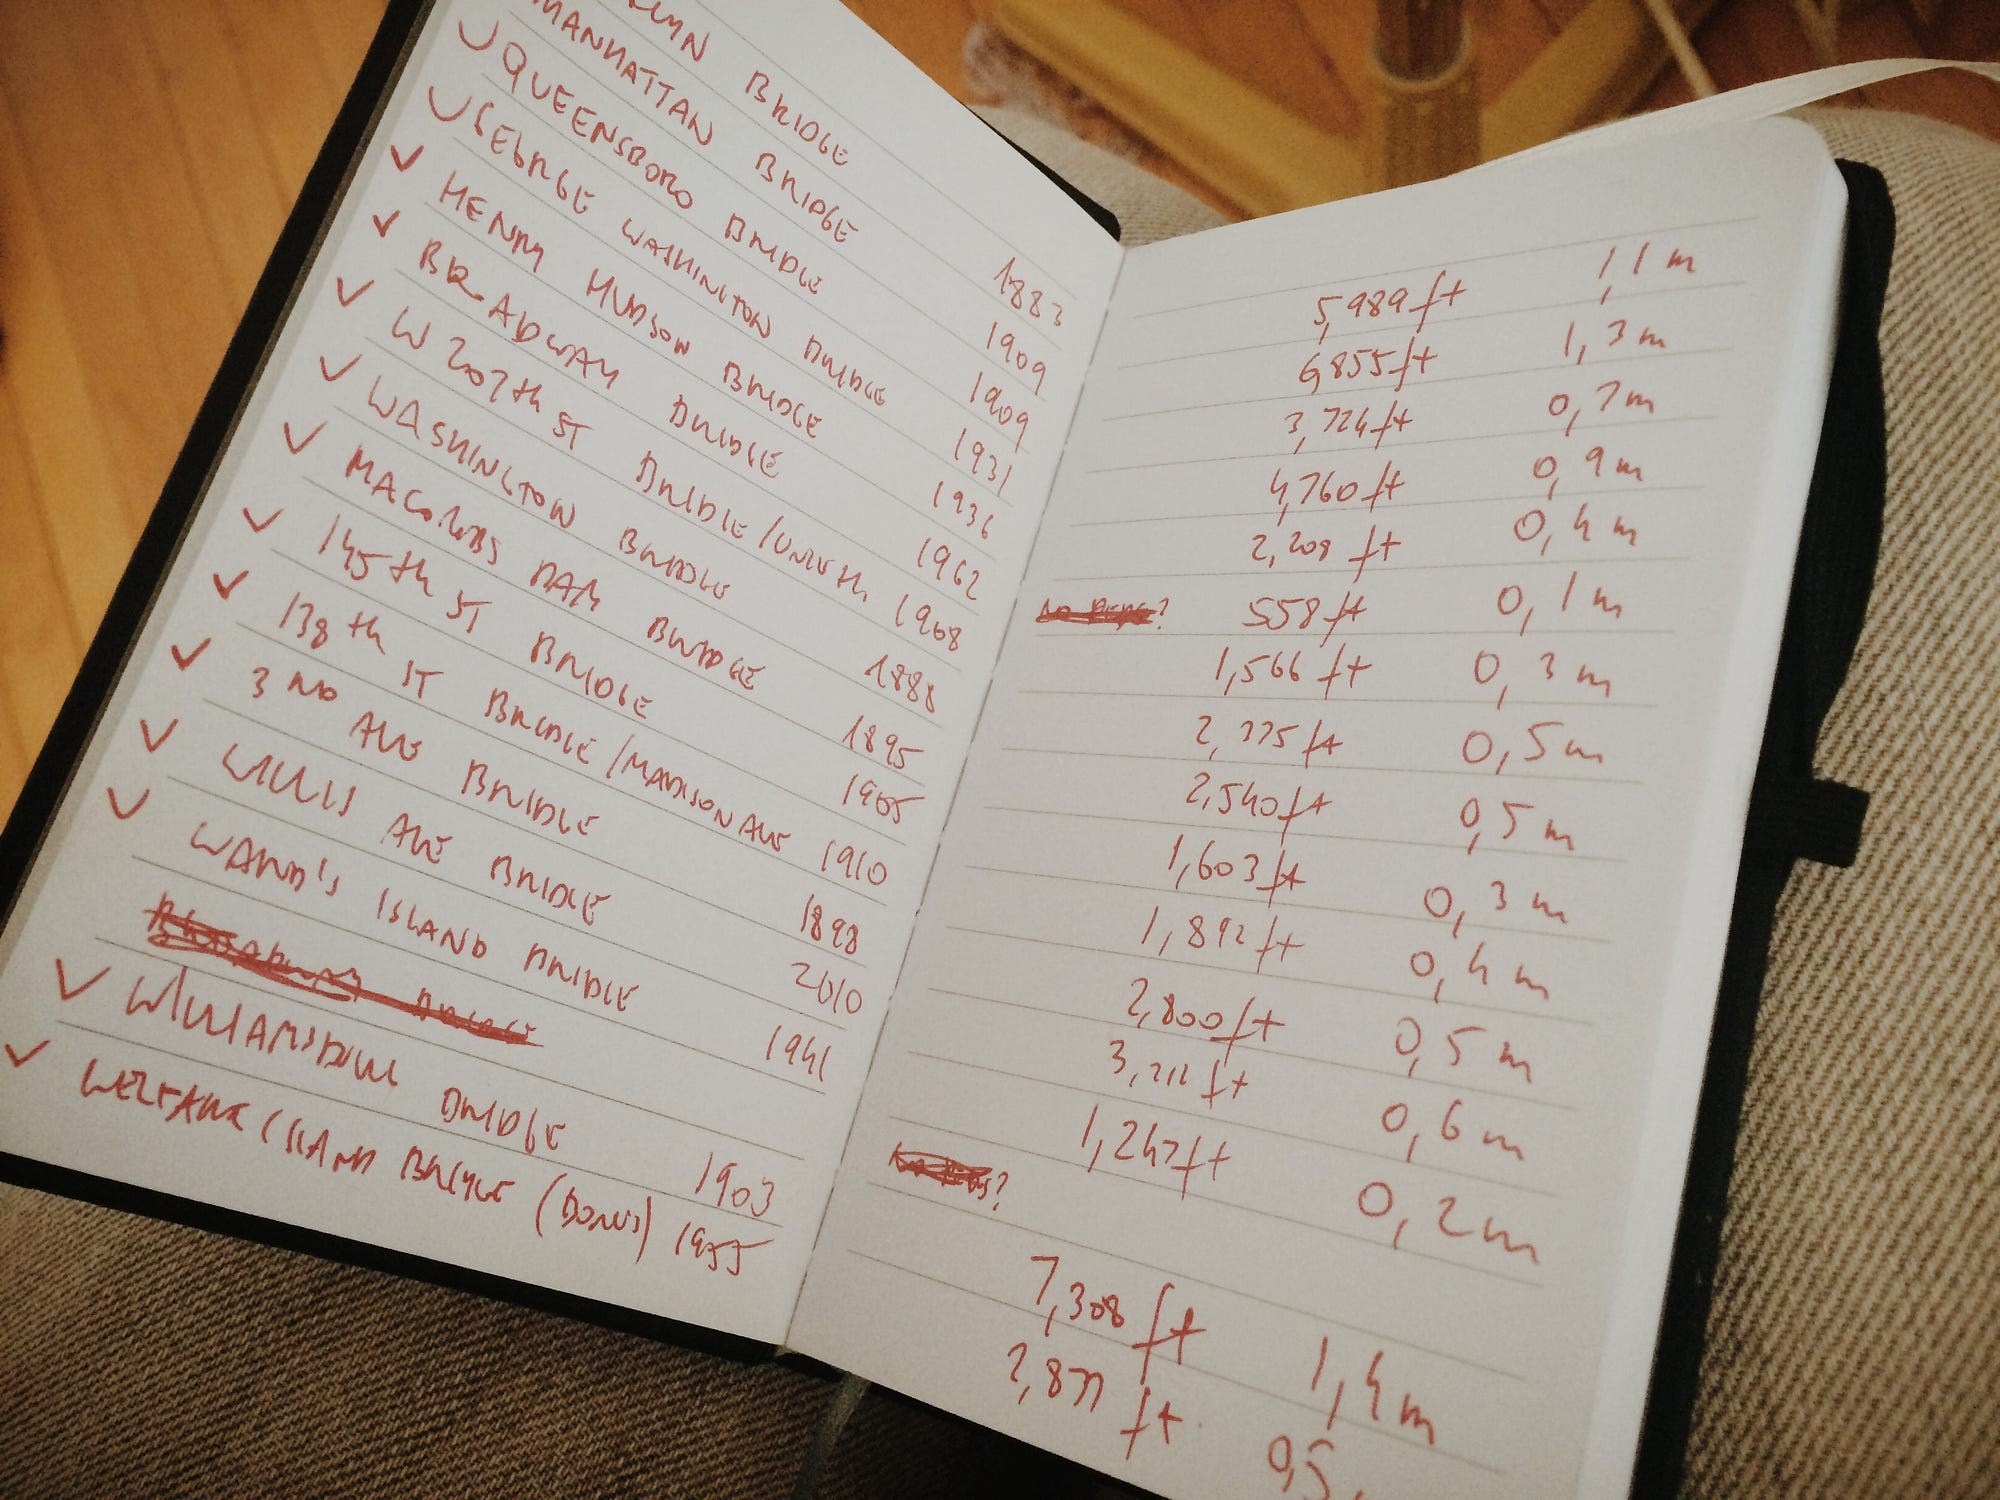 BRIDGE 1883 5,989 ft 1,1 m
MANHATTAN BRIDGE 1909 6,855 ft 1,3 m
QUEENSBORO BRIDGE 1909 3,724 ft 0,7 m
GEORGE WASHINGTON BRIDGE 1931 4,760 ft 0,9 m
HENRY HUDSON BRIDGE 1936 2,208 ft 0,4 m
BROADWAY BRIDGE 1962 ? 558 ft 0,1 m
W 207th ST BRIDGE / 1908 1,566 ft 0,3 m
WASHINGTON BRIDGE 1888 2,375 ft 0,5 m
MACOMBS DAM BRIDGE 1895 2,540 ft 0,5 m
145th ST BRIDGE 1905 1,603 ft 0,3 m
138th ST BRIDGE / MADISON AVE 1910 1,892 ft 0,4 m
3 RD AVE BRIDGE 1898 2,800 ft 0,5 m
WILLIS AVE BRIDGE 2010 3,212 ft 0,6 m
WARD'S ISLAND BRIDGE 1941 1,247 ft 0,2 m
?
WILLIAMSBURG BRIDGE 1903 7,308 ft 1,4 m
WELFARE ISLAND BRIDGE (BONUS) 1955 2,877 ft. 0,5